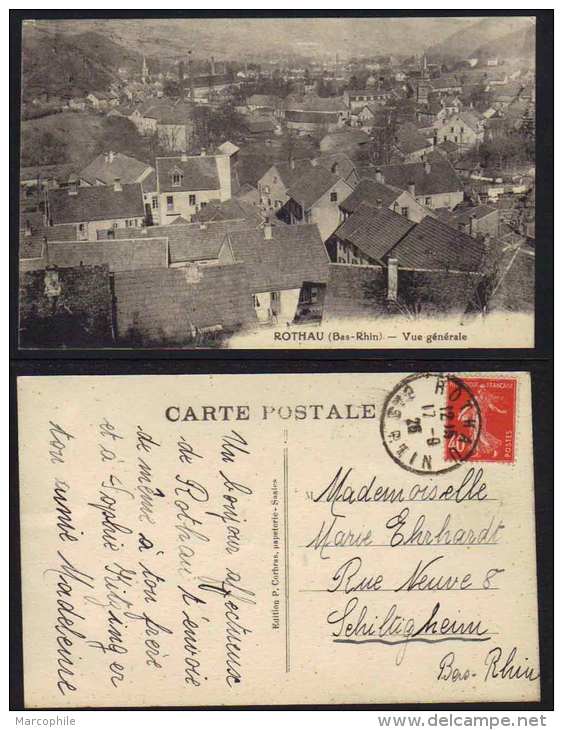 ROTHAU (Bas-Rhin) — Vue générale
CARTE POSTALE
Un bonjour affectueux
de Rothau t'envoie
de même à ton frère
et à Sophie
ton amie Madeleine
Edition P. Corbras, papeterie - Saales
ROTHAU
12
17-9
26
BAS RHIN
POSTES
Mademoiselle
Marie Ehrhardt
Rue Neuve 8
Schiltigheim
Bas-Rhin
Marcophile
www.delcampe.net